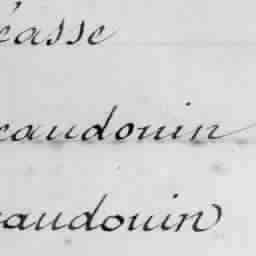 écasse
caudouin
caudouin